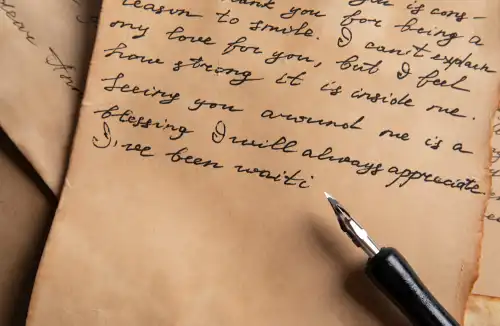 thank you is cons-
reason to smile. for being a
my love for you, but I can't explain
how strong it is inside me. I feel
Seeing you around me is a
blessing I will always appreciate.
I've been waiti